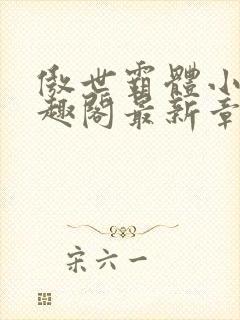 傲世霸體小
趣閣最新章
宋六一